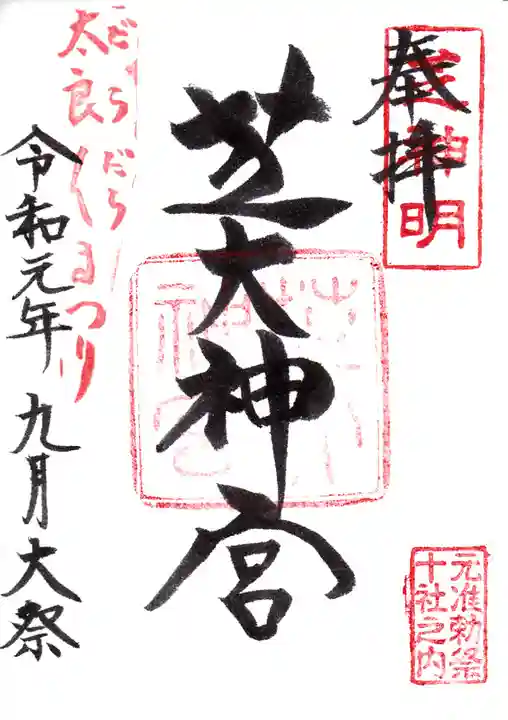 奉拝
芝神明
芝大神宮
元准勅祭
十社之内
だらだら
太良くまつり
令和元年 九月 大祭